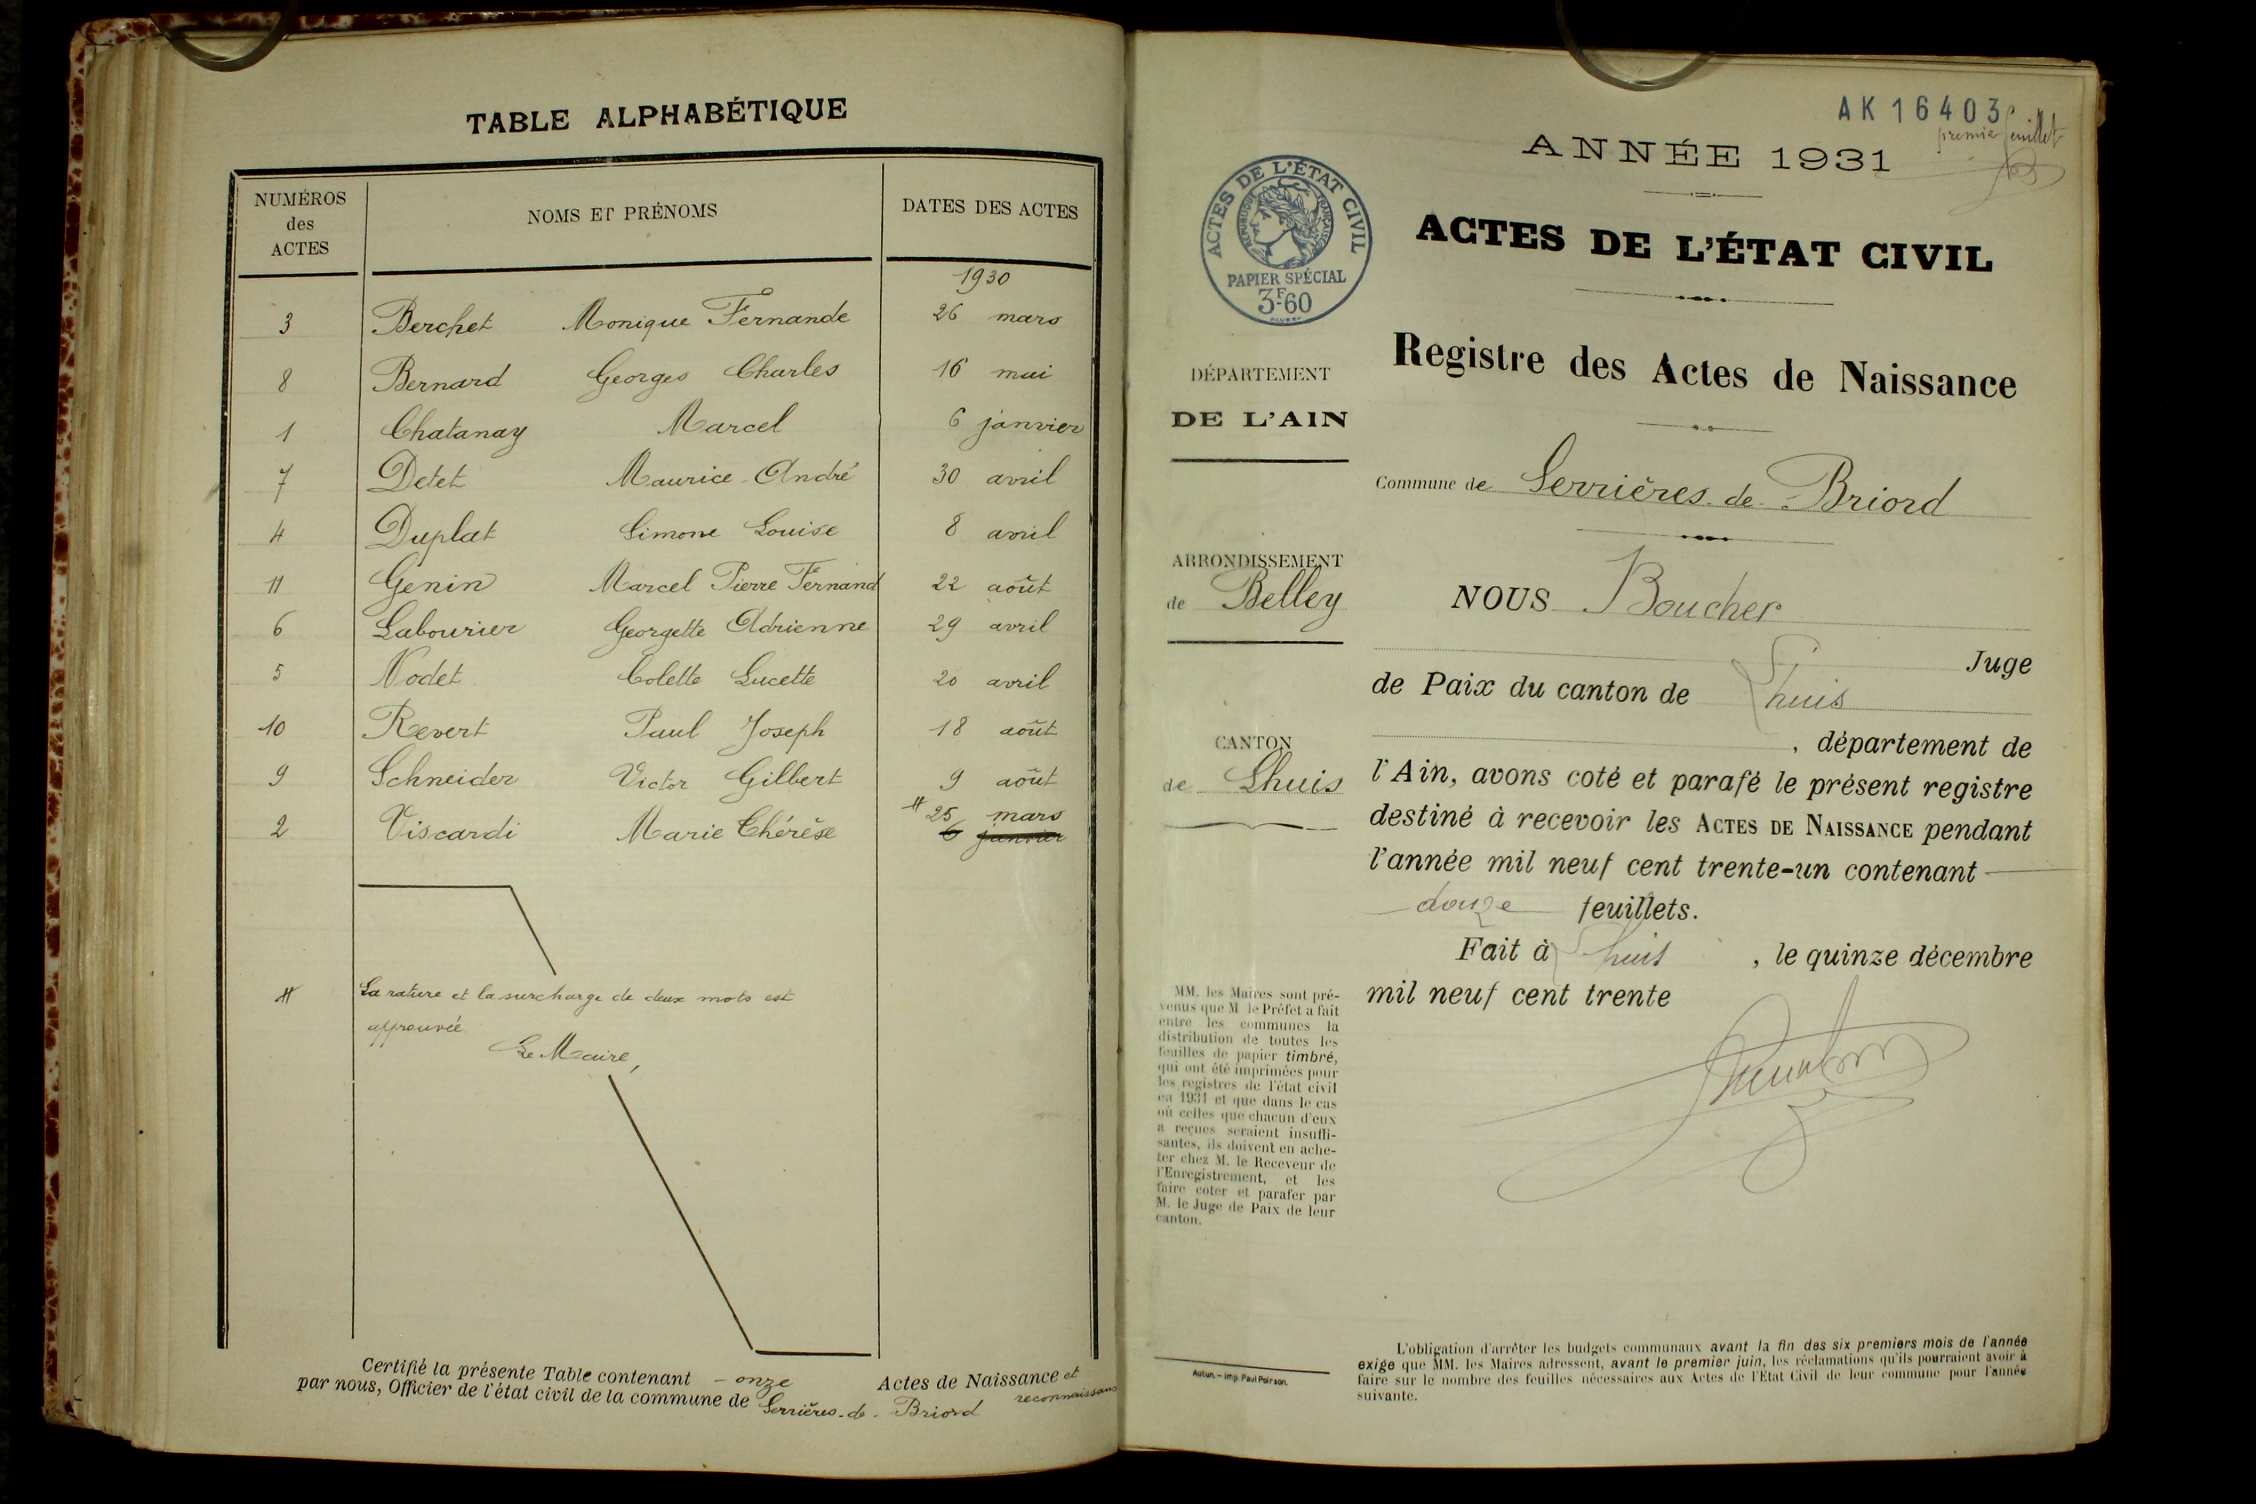 TABLE ALPHABÉTIQUE
NUMÉROS
des
ACTES
NOMS ET PRÉNOMS
DATES DES ACTES
1930
3 Berchet Monique Fernande 26 mars
8 Bernard Georges Charles 16 mai
1 Chatanay Marcel 6 janvier
7 Detet Maurice André 30 avril
4 Duplat Simone Louise 8 avril
11 Genin Marcel Pierre Fernand 22 août
6 Labourier Georgette Adrienne 29 avril
5 Nodet Colette Lucette 20 avril
10 Revert Paul Joseph 18 août
9 Schneider Victor Gilbert 9 août
# 25 mars
2 Viscardi Marie Thérèse 6 janvier
# La rature et la surcharge de deux mots est
approuvée
Le Maire,
Certifié la présente Table contenant - onze Actes de Naissance et
reconnaissans
par nous, Officier de l'état civil de la commune de Serrières-de-Briord
AK 16403
premier feuillet
ANNÉE 1931
ACTES DE L'ÉTAT CIVIL
RÉPUBLIQUE FRANÇAISE
PAPIER SPÉCIAL
3F.60
ACTES DE L'ÉTAT CIVIL
Registre des Actes de Naissance
DÉPARTEMENT
DE L'AIN
Commune de Serrières-de-Briord
ARRONDISSEMENT
de Belley
CANTON
de Lhuis
NOUS Boucher
Juge
de Paix du canton de Lhuis
, département de
l'Ain, avons coté et parafé le présent registre
destiné à recevoir les ACTES DE NAISSANCE pendant
l'année mil neuf cent trente-un contenant
douze feuillets.
Fait à Lhuis , le quinze décembre
mil neuf cent trente
MM. les Maires sont pré-
venus que M. le Préfet a fait
entre les communes la
distribution de toutes les
feuilles de papier timbré,
qui ont été imprimées pour
les registres de l'état civil
en 1931 et que dans le cas
où celles que chacun d'eux
a reçues seraient insuffi-
santes, ils doivent en ache-
ter chez M. le Receveur de
l'Enregistrement, et les
faire coter et parafer par
M. le Juge de Paix de leur
canton.
Autun. - Imp. Paul Poirson.
L'obligation d'arrêter les budgets communaux avant la fin des six premiers mois de l'année
exige que MM. les Maires adressent, avant le premier juin, les réclamations qu'ils pourraient avoir à
faire sur le nombre des feuilles nécessaires aux Actes de l'État Civil de leur commune pour l'année
suivante.